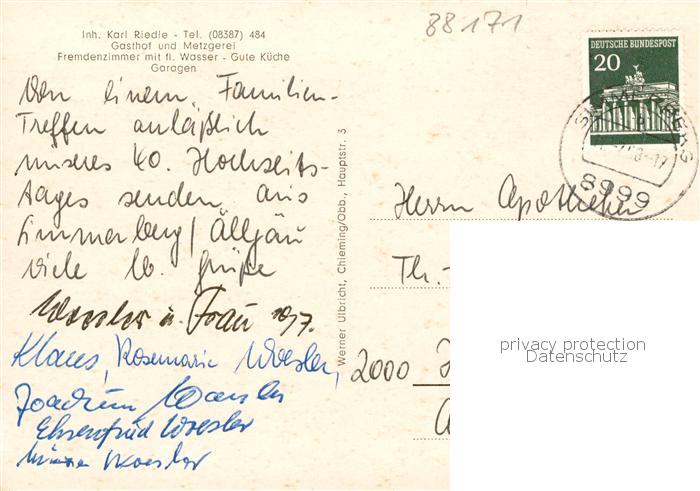 88171
Inh. Karl Riedle - Tel. (08387) 484
Gasthof und Metzgerei
Fremdenzimmer mit fl. Wasser - Gute Küche
Garagen
DEUTSCHE BUNDESPOST
20
8999
Von einem Familien-
Treffen anläßlich
unseres 40. Hochzeits-
tages senden aus
Simmerberg/Allgäu
viele lb. Grüße
Woesler u. Frau
Klaus, Rosemarie Woesler,
Joachim Woesler
Ehrenfried Woesler
Woesler
Werner Ulbricht, Chieming/Obb., Hauptstr. 3
Herrn Apotheker
Th.-
2000
privacy protection
Datenschutz